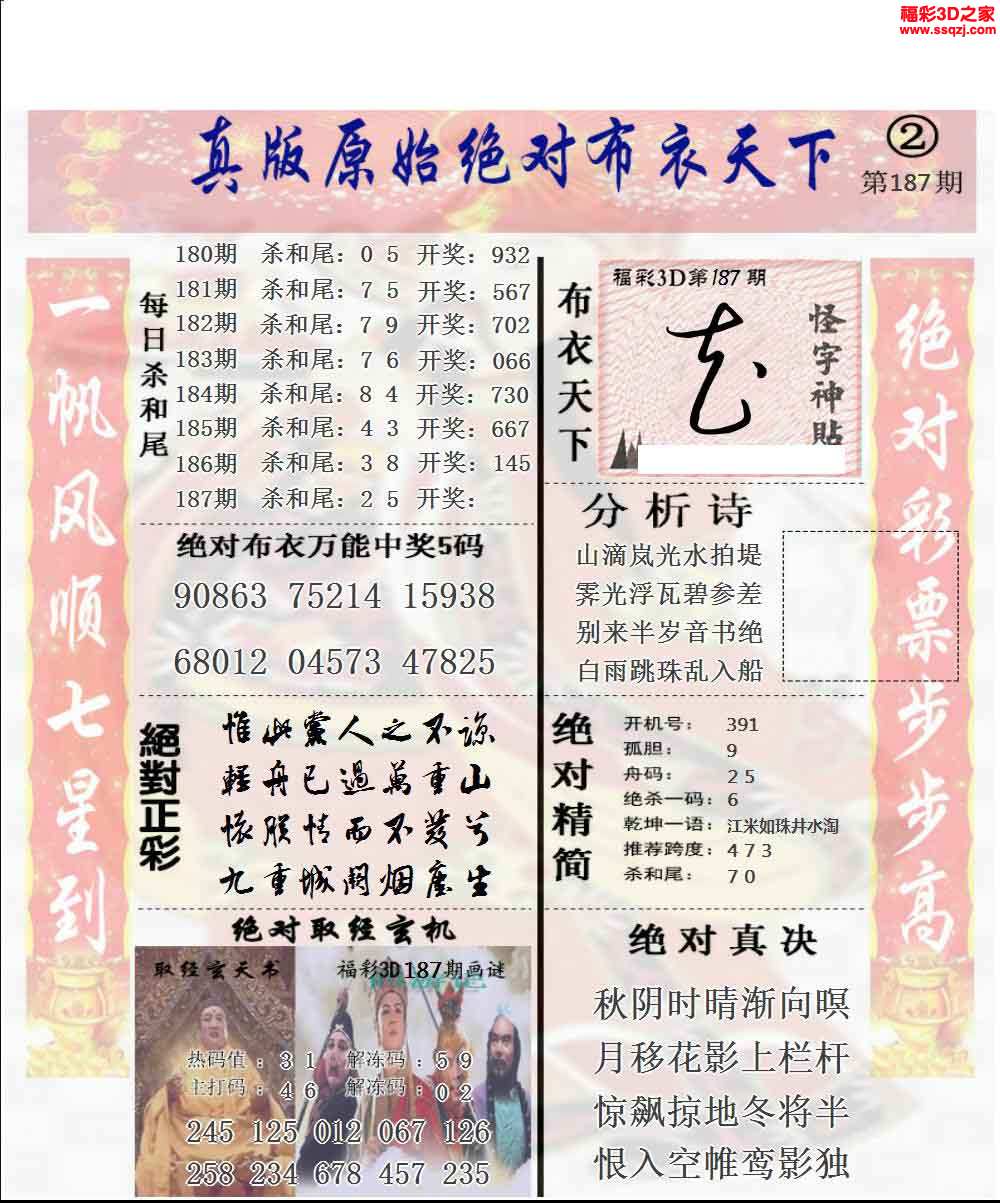 福彩3D之家
www.ssqzj.com
真版原始绝对布衣天下
②
第187期
一帆风顺七星到
每日杀和尾
180期 杀和尾：0 5 开奖：932
181期 杀和尾：7 5 开奖：567
182期 杀和尾：7 9 开奖：702
183期 杀和尾：7 6 开奖：066
184期 杀和尾：8 4 开奖：730
185期 杀和尾：4 3 开奖：667
186期 杀和尾：3 8 开奖：145
187期 杀和尾：2 5 开奖：
绝对布衣万能中奖5码
90863 75214 15938
68012 04573 47825
絕對正彩
惟此黨人之不諒
輕舟已過萬重山
懷朕情而不發兮
九重城闕烟塵生
绝对取经玄机
取经玄天书
福彩3D187期画谜
热码值：3 1 解冻码：5 9
主打码：4 6 解冻码：0 2
245 125 012 067 126
258 234 678 457 235
布衣天下
福彩3D第187期
怪字神貼
分析诗
山滴岚光水拍堤
霁光浮瓦碧参差
别来半岁音书绝
白雨跳珠乱入船
绝对精简
开机号：391
孤胆：9
舟码：2 5
绝杀一码：6
乾坤一语：江米如珠井水淘
推荐跨度：4 7 3
杀和尾：7 0
绝对真决
秋阴时晴渐向暝
月移花影上栏杆
惊飙掠地冬将半
恨入空帷鸾影独
绝对彩票步步高